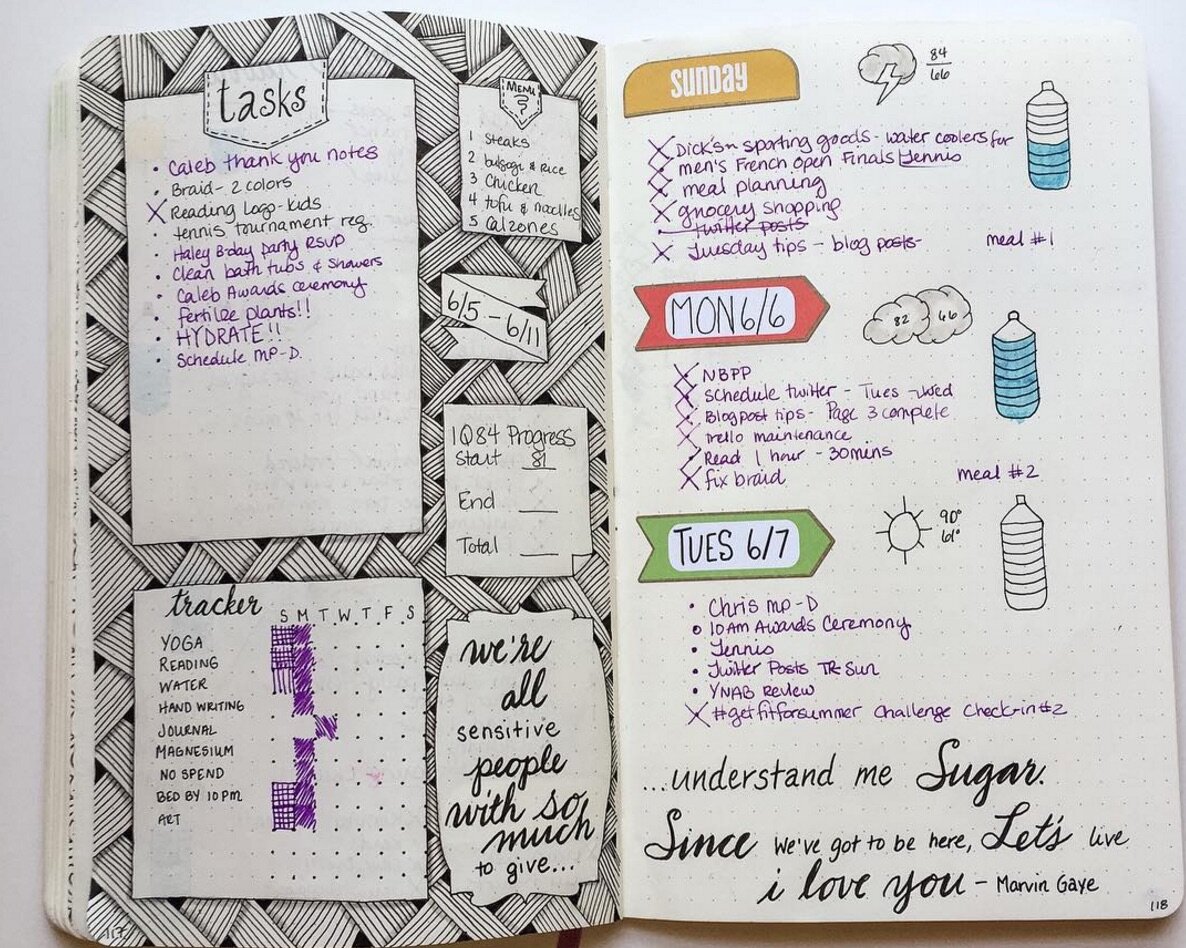 tasks
• Caleb thank you notes
• Braid - 2 colors
X Reading Logo - kids
• tennis tournament reg.
• Haley B-day party RSVP
• Clean bath tubs & showers
• Caleb Awards ceremony
• fertilize plants!!
• HYDRATE!!
• Schedule MP-D.
MENU
1 Steaks
2 bulgogi & Rice
3 Chicken
4 tofu & noodles
5 Calzones
6/5 - 6/11
1Q84 Progress
Start 81
End ___
Total ___
tracker
S M T W T F S
YOGA
READING
WATER
HAND WRITING
JOURNAL
MAGNESIUM
NO SPEND
BED BY 10PM
ART
we're
all
sensitive
people
with so
much
to give...
117
SUNDAY
84
66
X Dick's sporting goods - water coolers for
X men's French Open Finals Tennis
X meal planning
X grocery shopping
• twitter posts
X Tuesday tips - blog posts-
meal #1
MON 6/6
82 66
X NBPP
X schedule twitter - Tues - Wed
X Blog post tips - Page 3 complete
X trello maintenance
X Read 1 hour - 30mins
X fix braid
meal #2
TUES 6/7
90°
61°
• Chris MP-D
• 10 AM Awards Ceremony
• Tennis
• Twitter Posts TR-Sun
• YNAB Review
X #getfitforsummer challenge check-in #2
...understand me Sugar.
Since we've got to be here, Let's live
i love you - Marvin Gaye
118